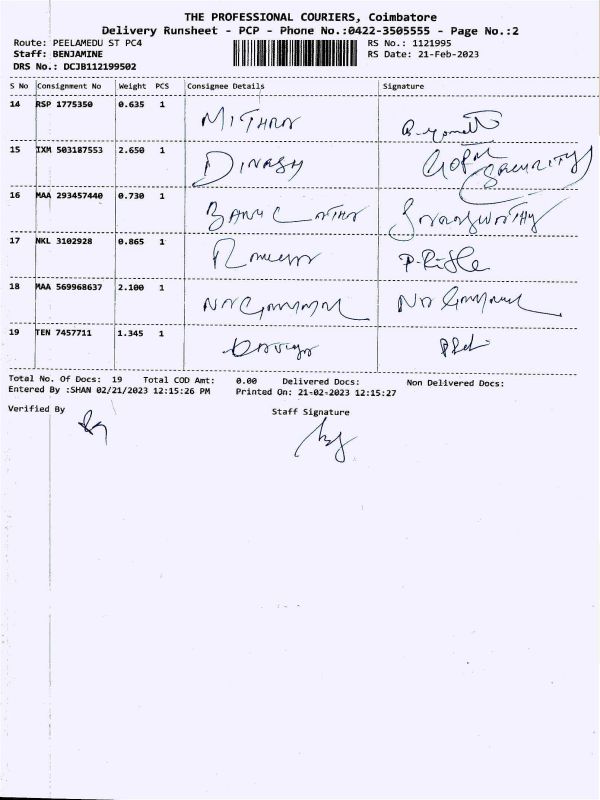 THE PROFESSIONAL COURIERS, Coimbatore
Delivery Runsheet - PCP - Phone No.:0422-3505555 - Page No.:2
Route: PEELAMEDU ST PC4 RS No.: 1121995
Staff: BENJAMINE RS Date: 21-Feb-2023
DRS No.: DCJB112199502
S No Consignment No Weight PCS Consignee Details Signature
14 RSP 1775350 0.635 1
MITHRA
15 IXM 503187553 2.650 1
DINASH GOPAL
SECURITY
16 MAA 293457440 0.730 1
17 NKL 3102928 0.865 1
18 MAA 569968637 2.100 1
19 TEN 7457711 1.345 1
Total No. Of Docs: 19 Total COD Amt: 0.00 Delivered Docs: Non Delivered Docs:
Entered By :SHAN 02/21/2023 12:15:26 PM Printed On: 21-02-2023 12:15:27
Verified By Staff Signature